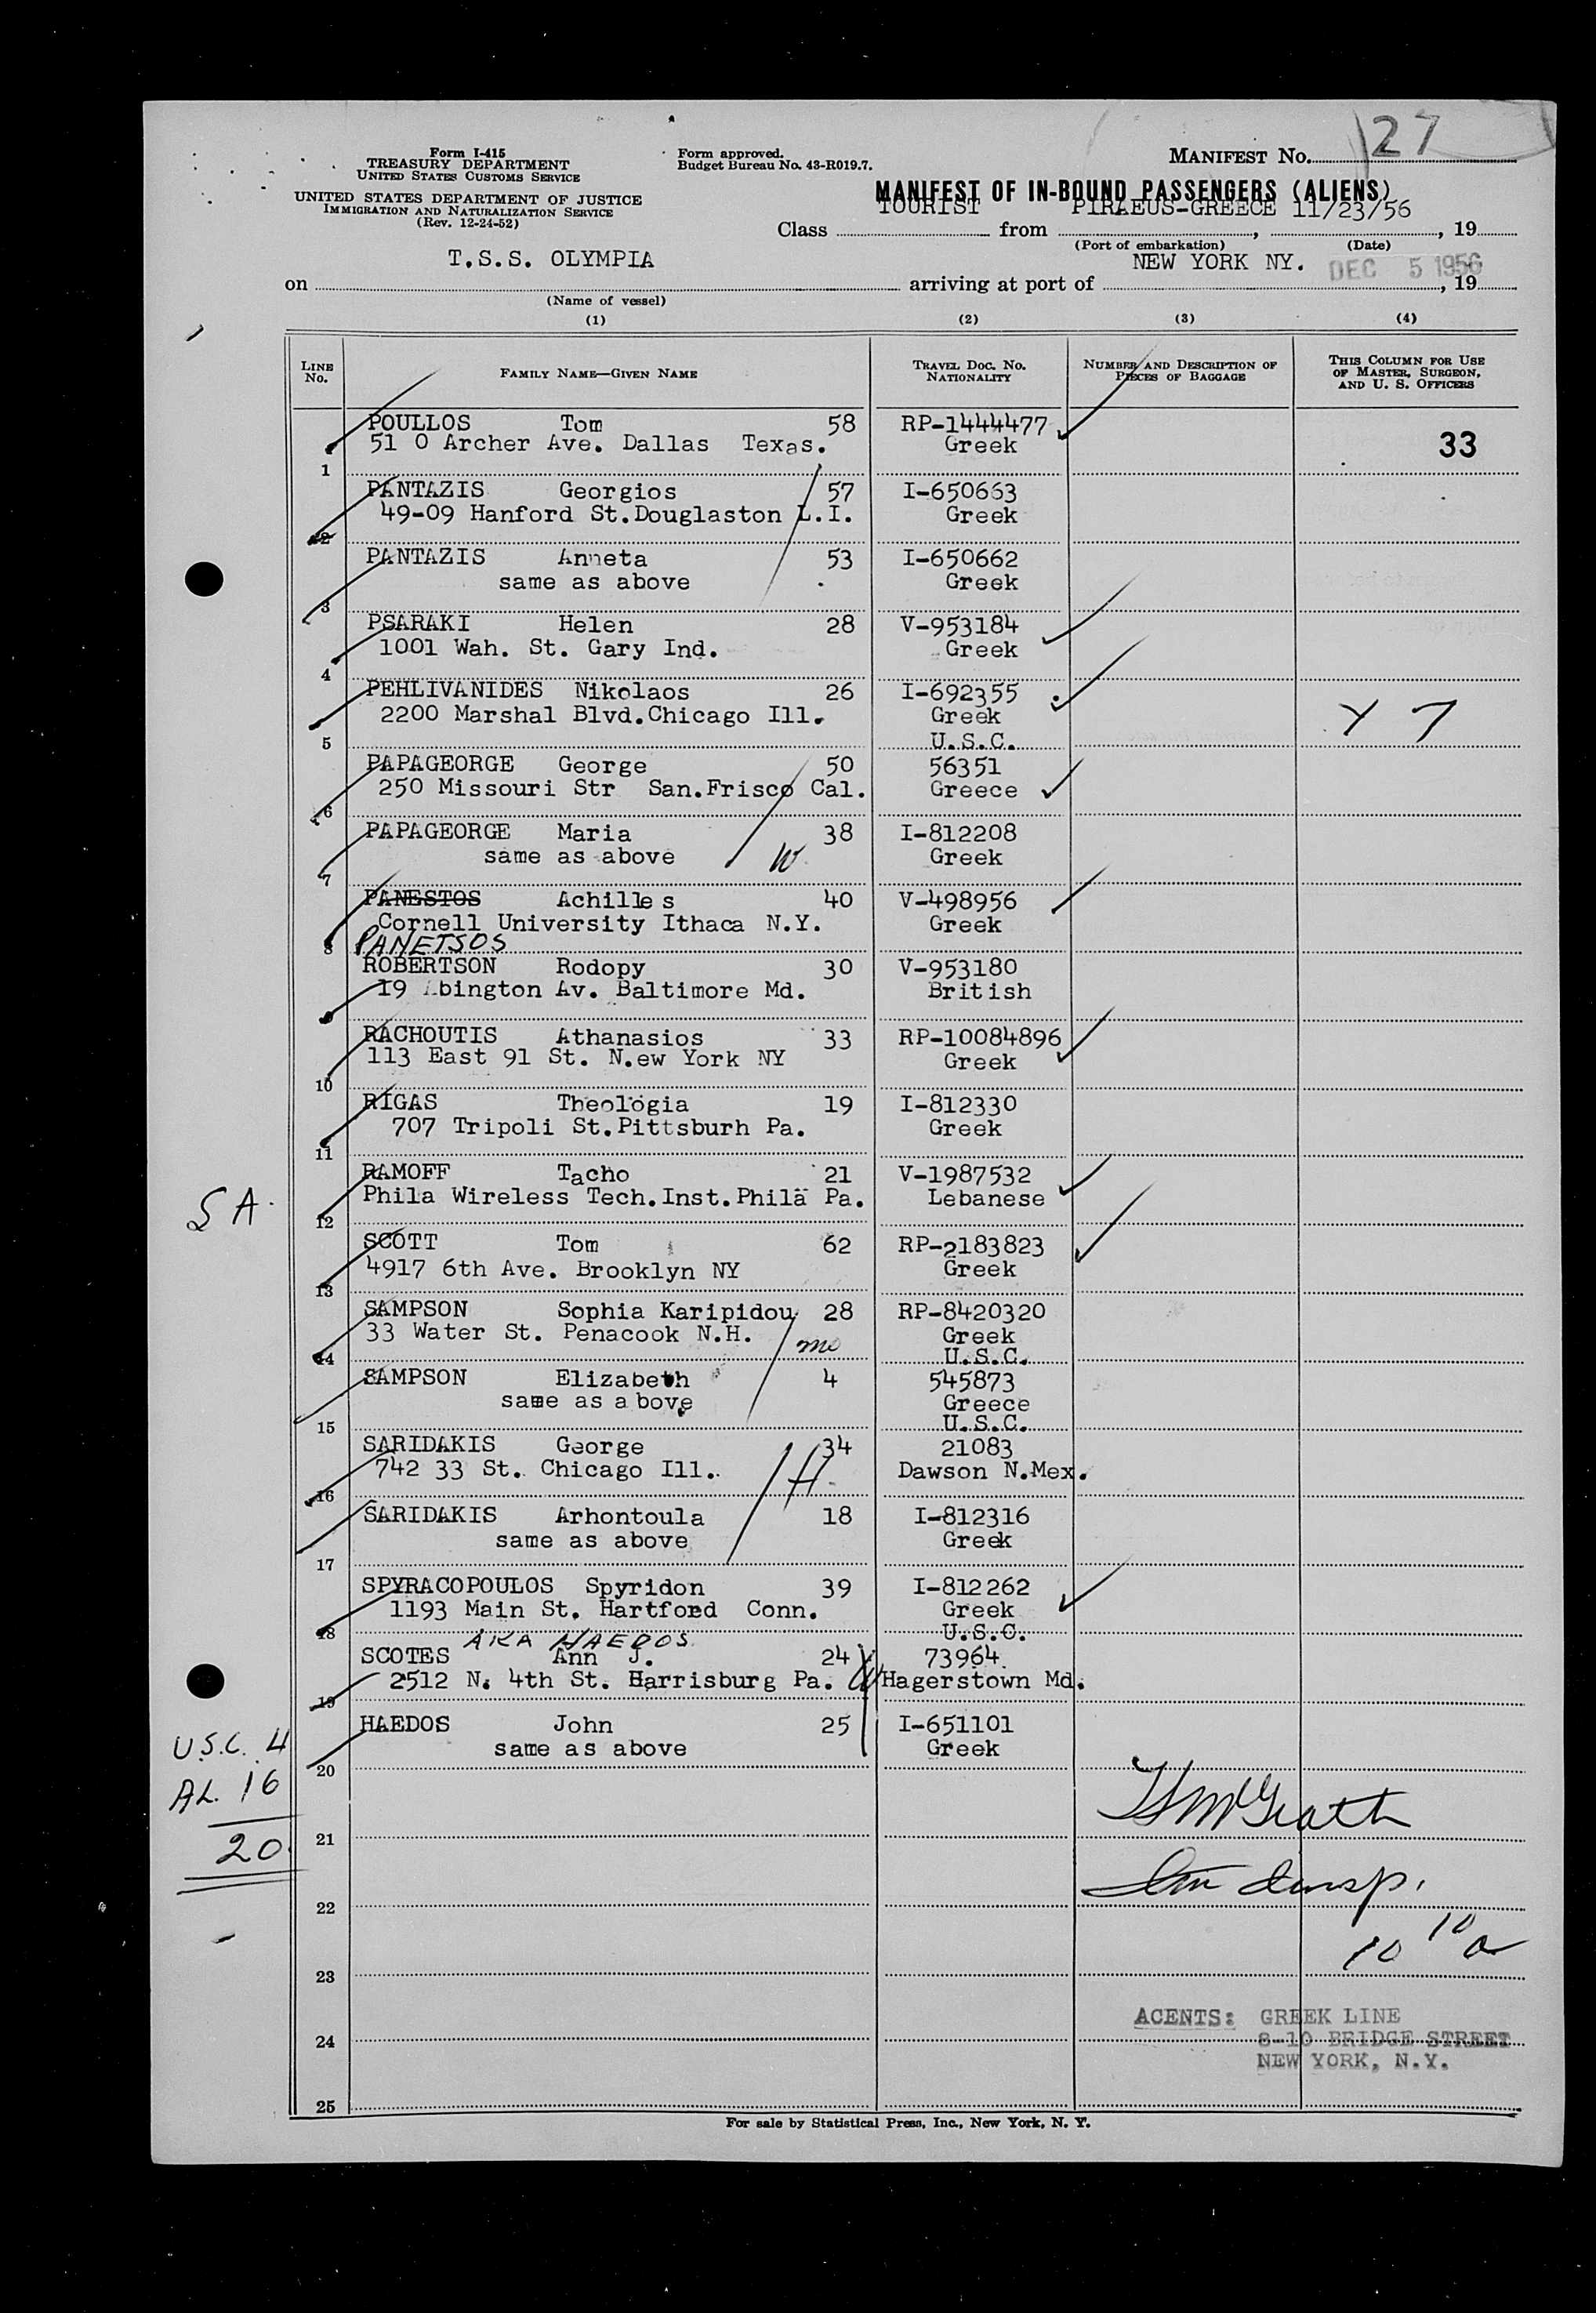 Form I-415
TREASURY DEPARTMENT
UNITED STATES CUSTOMS SERVICE
UNITED STATES DEPARTMENT OF JUSTICE
IMMIGRATION AND NATURALIZATION SERVICE
(Rev. 12-24-52)
Form approved.
Budget Bureau No. 43-R019.7.
MANIFEST No. 27
MANIFEST OF IN-BOUND PASSENGERS (ALIENS)
Class TOURIST from PIRAEUS-GREECE 11/23/56, 19
(Port of embarkation) (Date)
on T.S.S. OLYMPIA arriving at port of NEW YORK NY. DEC 5 1956, 19
(Name of vessel)
(1) (2) (3) (4)
LINE No. FAMILY NAME—GIVEN NAME TRAVEL DOC. NO. NATIONALITY NUMBER AND DESCRIPTION OF PIECES OF BAGGAGE THIS COLUMN FOR USE OF MASTER, SURGEON, AND U. S. OFFICERS
POULLOS Tom 58 RP-1444477
51 0 Archer Ave. Dallas Texas. Greek 33
1
PANTAZIS Georgios 57 I-650663
49-09 Hanford St.Douglaston L.I. Greek
2
PANTAZIS Anneta 53 I-650662
same as above Greek
3
PSARAKI Helen 28 V-953184
1001 Wah. St. Gary Ind. Greek
4
PEHLIVANIDES Nikolaos 26 I-692355
2200 Marshal Blvd.Chicago Ill. Greek
5 U.S.C.
PAPAGEORGE George 50 56351
250 Missouri Str San.Frisco Cal. Greece
6
PAPAGEORGE Maria 38 I-812208
same as above W Greek
7
PANESTOS Achilles 40 V-498956
Cornell University Ithaca N.Y. Greek
8 PANETSOS
ROBERTSON Rodopy 30 V-953180
19 Abington Av. Baltimore Md. British
9
RACHOUTIS Athanasios 33 RP-10084896
113 East 91 St. N.ew York NY Greek
10
RIGAS Theologia 19 I-812330
707 Tripoli St.Pittsburh Pa. Greek
11
RAMOFF Tacho 21 V-1987532
Phila Wireless Tech.Inst.Phila Pa. Lebanese
SA.
12
SCOTT Tom 62 RP-2183823
4917 6th Ave. Brooklyn NY Greek
13
SAMPSON Sophia Karipidou 28 RP-8420320
33 Water St. Penacook N.H. Greek
14 mo U.S.C.
SAMPSON Elizabeth 4 545873
same as above Greece
15 U.S.C.
SARIDAKIS George 34 21083
742 33 St. Chicago Ill. H Dawson N.Mex.
16
SARIDAKIS Arhontoula 18 I-812316
same as above Greek
17
SPYRACOPOULOS Spyridon 39 I-812262
1193 Main St. Hartford Conn. Greek
18 AKA HAEDOS U.S.C.
SCOTES Ann J. 24 73964
2512 N. 4th St. Harrisburg Pa. W Hagerstown Md.
19
HAEDOS John 25 I-651101
same as above Greek
20
U.S.C. 4
AL. 16
20
21
22
23
24
25
Imm Insp.
10 10 a
AGENTS: GREEK LINE
8-10 BRIDGE STREET
NEW YORK, N.Y.
For sale by Statistical Press, Inc., New York, N. Y.